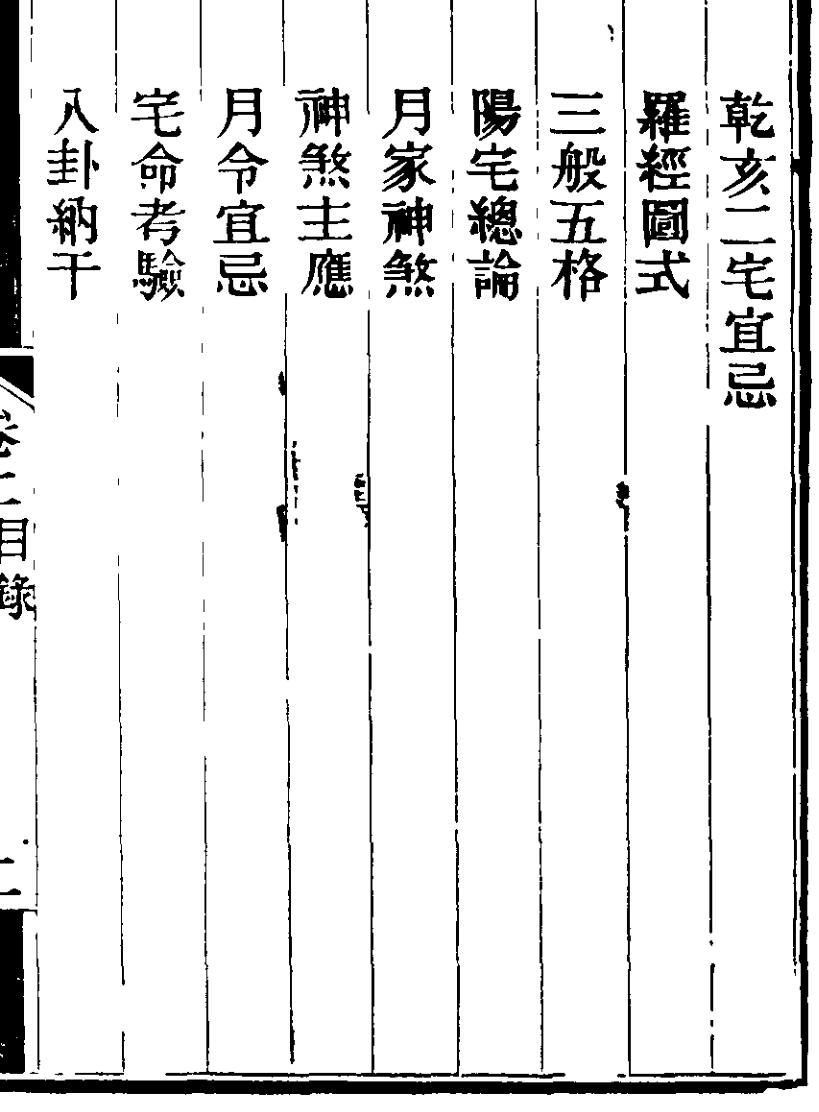 乾亥二宅宜忌
羅經圖式
三般五格
陽宅總論
月家神煞
神煞主應
月令宜忌
宅命考驗
八卦納干
卷二目錄
二